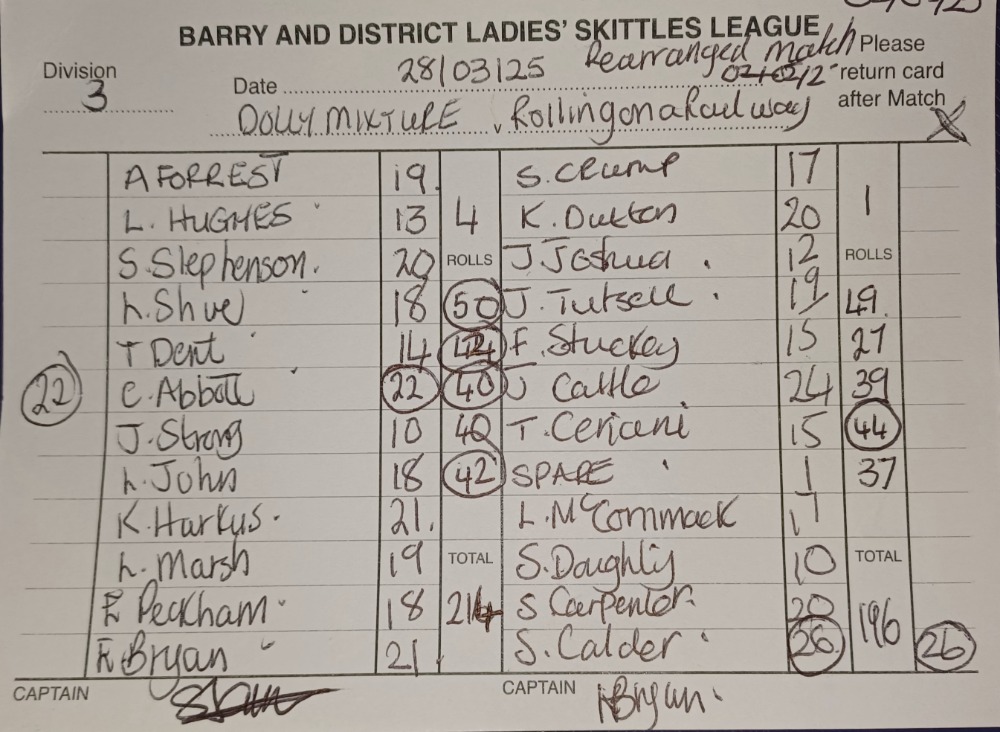 BARRY AND DISTRICT LADIES' SKITTLES LEAGUE
Rearranged match
Division Date 28/03/25 Please
3 return card
after Match
DOLLY MIXTURE v Rollingonarailway
A FORREST 19 S. Crump 17
L. HUGHES 13 4 K. Dutton 20 1
S. Stephenson. 20 ROLLS J Joshua . 12 ROLLS
L. Shve 18 50 J. Tutsell . 19 49
T Dent 14 42 F. Stuckey 15 27
22 C. Abbott 22 40 J Cattle 24 39
J. Strong 10 40 T. Ceriani 15 44
L. John 18 42 SPARE 1 37
K. Harkus. 21. L. McCommack 17
L. Marsh 19 TOTAL S. Doughty 10 TOTAL
E Peckham 18 214 S Carpenter. 20 196
K Bryan 21 S. Calder 26 26
CAPTAIN CAPTAIN KBryan.